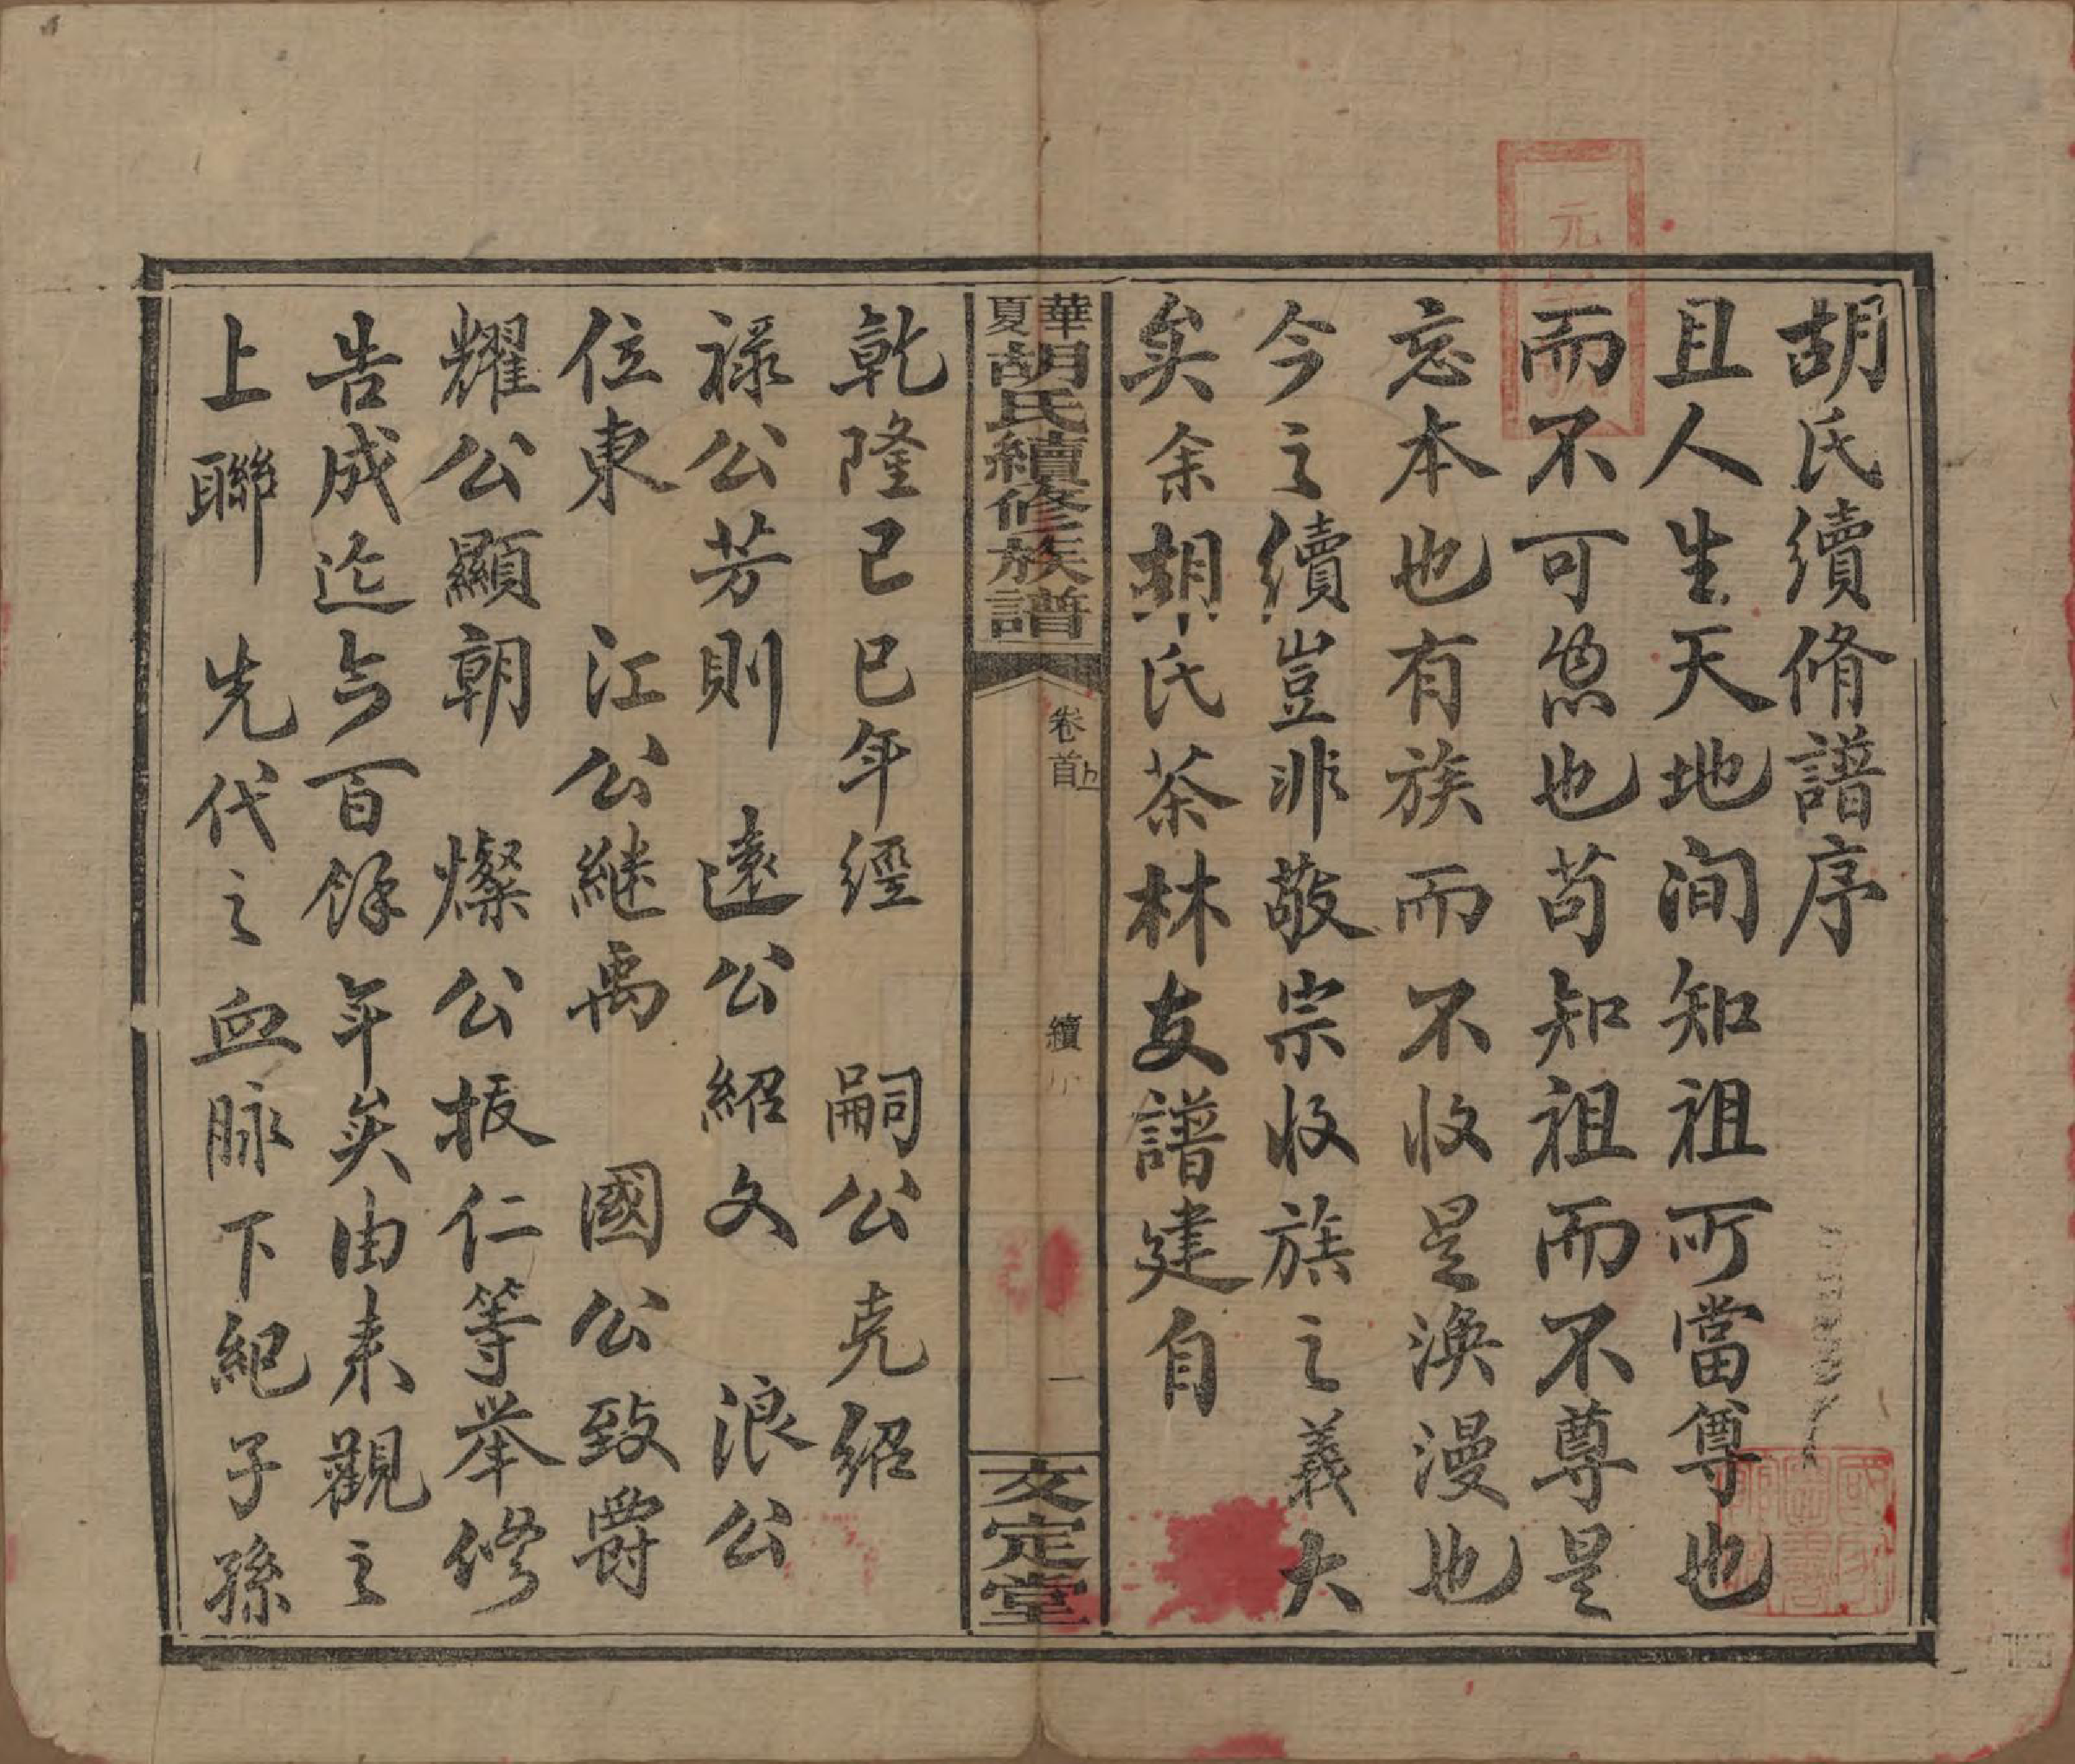 胡氏續脩譜序
且人生天地間知祖所當尊也
而不可忽也苟知祖而不尊是
忘本也有族而不收是渙漫也
今之續豈非敬宗收族之義大
矣余胡氏茶林友譜建自
華夏胡氏續修族譜
卷首上
續序
一
文定堂
乾隆己巳年經 嗣公克紹
祿公芳則 遠公紹文 浪公
位東 江公継禹 國公致爵
耀公顯朝 燦公振仁等举修
告成迄今百餘年矣由来觀之
上聯 先代之血脉下紀子孫
元